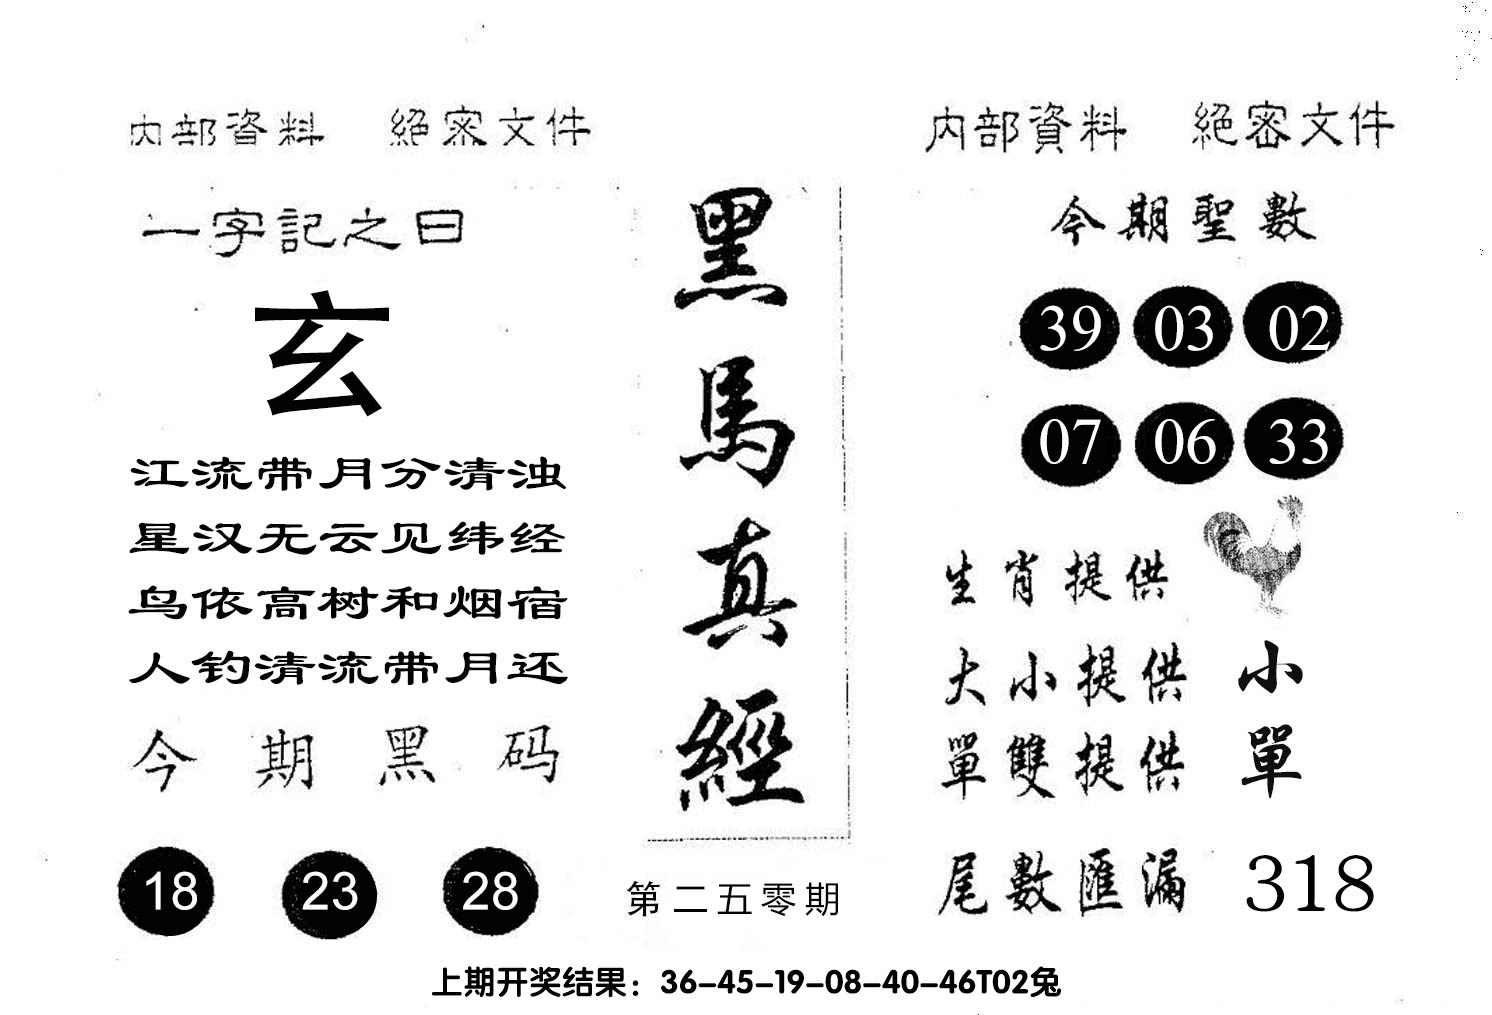 内部資料 絕密文件
一字記之曰
玄
江流带月分清浊
星汉无云见纬经
鸟依高树和烟宿
人钓清流带月还
今期黑码
18 23 28
黑馬真經
第二五零期
内部資料 絕密文件
今期聖數
39 03 02
07 06 33
生肖提供
大小提供 小
單雙提供 單
尾數匯漏 318
上期开奖结果：36-45-19-08-40-46T02兔